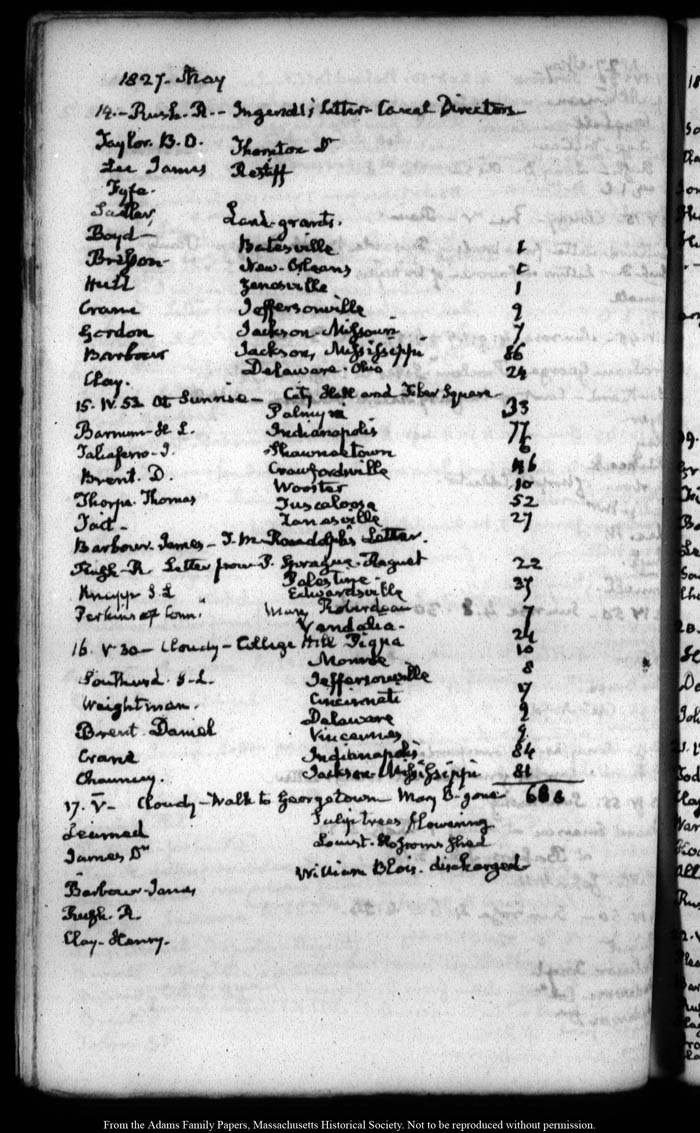 1827. May
14. - Rush. R. - Ingersoll; letter. Canal Directors
Taylor. B. O. Thornton Dr
Lee James Restiff
Fyfe.
Sadler, Land-grants.
Boyd -
Batesville 1
Brisson New-Orleans 1
Hull Zenosville 1
Crane Jeffersonville 2
Gordon Jackson Missouri 7
Barbour Jackson, Mississippi 86
Clay. Delaware. Ohio 24
15. IV. 52 at Sunrise - City Hall and Tiber Square -
Palmyra 33
Barnum - H. L. Indianapolis 77
Taliaferro - J. Shawneetown 6
Brent. D. Crawfordsville 46
Wooster 10
Thorpe. Thomas Tuscaloosa 52
Tait - Zanesville 27
Barbour. James - T. M. Randolph's Letter.
Rush - R. Letter from P. Sprague. Raguet 22
Knapp S L Palestine -
Edwardsville 37
Perkins of Conn: Mary Roberdeau
Vandalia - 7
16. V 30 - Cloudy - College Hill Piqua 24
Monroe 10
Southard. S - L. Jeffersonville 8
Weightman. Cincinnati 17
Delaware 2
Brent. Daniel Vincennes 9
Crane Indianapolis 84
Chauncey. Jackson. Mississippi 81
17. V - Cloudy - Walk to Georgetown Mary B - gone 686
Learned Tulip trees flowering
James Dr Locust - blossoms shed
William Blois. discharged
Barbour James
Rush. R.
Clay - Henry.
From the Adams Family Papers, Massachusetts Historical Society. Not to be reproduced without permission.